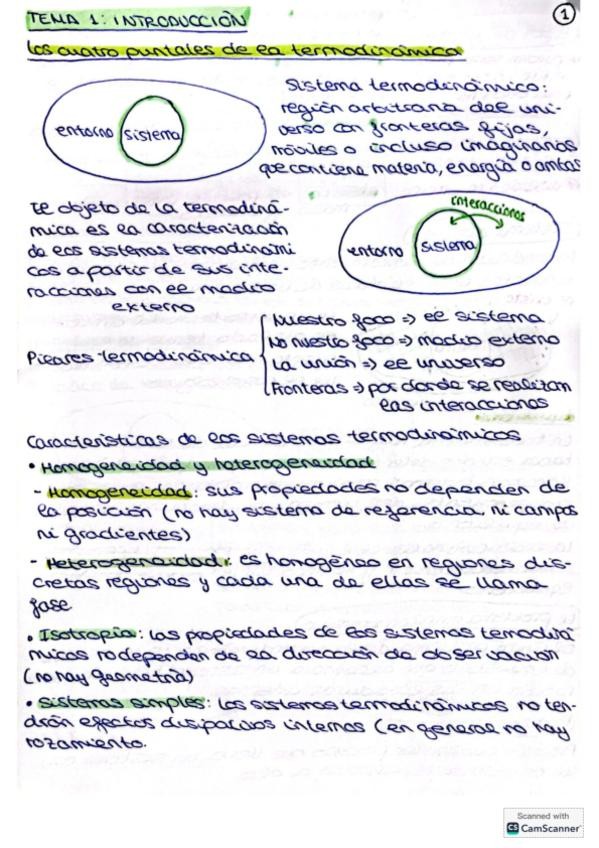 TEMA 1: INTRODUCCIÓN
1
Los cuatro puntales de la termodinámica
entorno
sistema
Sistema termodinámico:
región arbitraria del uni-
verso con fronteras fijas,
móviles o incluso imaginarias
que contiene materia, energía o ambas
El objeto de la termodiná-
mica es la caracterización
de los sistemas termodinámi
cos a partir de sus inte-
racciones con el medio
externo
interacciones
entorno
sistema
Pilares termodinámica
Nuestro foco => el sistema
No nuestro foco => medio externo
La unión => el universo
Fronteras => por donde se realizan
las interacciones
Características de los sistemas termodinámicos
• Homogeneidad y heterogeneidad
- Homogeneidad: sus propiedades no dependen de
la posición (no hay sistema de referencia, ni campos
ni gradientes)
- Heterogeneidad: es homogéneo en regiones dis-
cretas regiones y cada una de ellas se llama
fase
• Isotropía: las propiedades de los sistemas termodiná
micos no dependen de la dirección de observación
(no hay geometría)
• Sistemas simples: los sistemas termodinámicos no ten-
drán efectos disipativos internos (en general no hay
rozamiento.
Scanned with
CS CamScanner